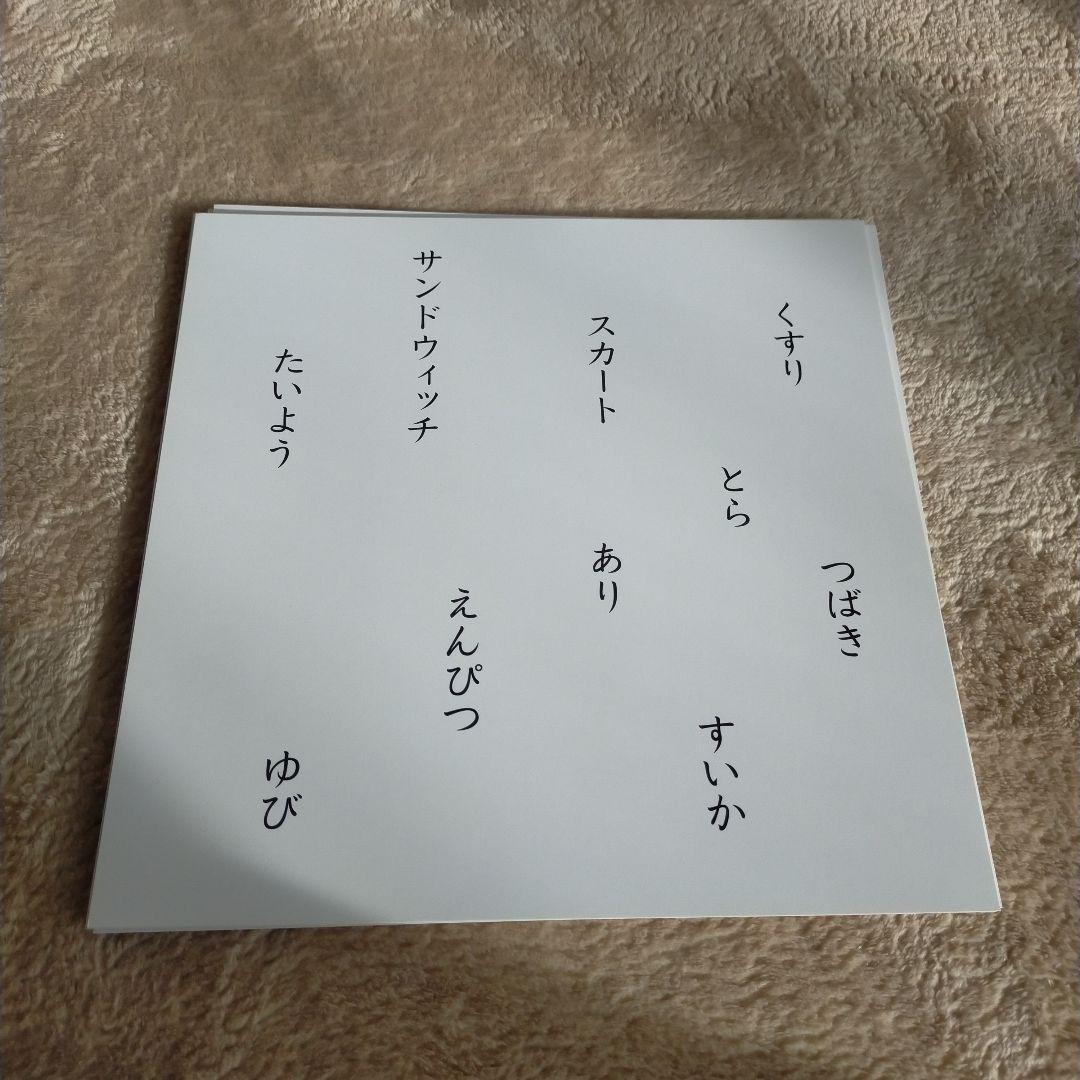 くすり
つばき
とら
すいか
スカート
あり
サンドウィッチ
えんぴつ
たいよう
ゆび